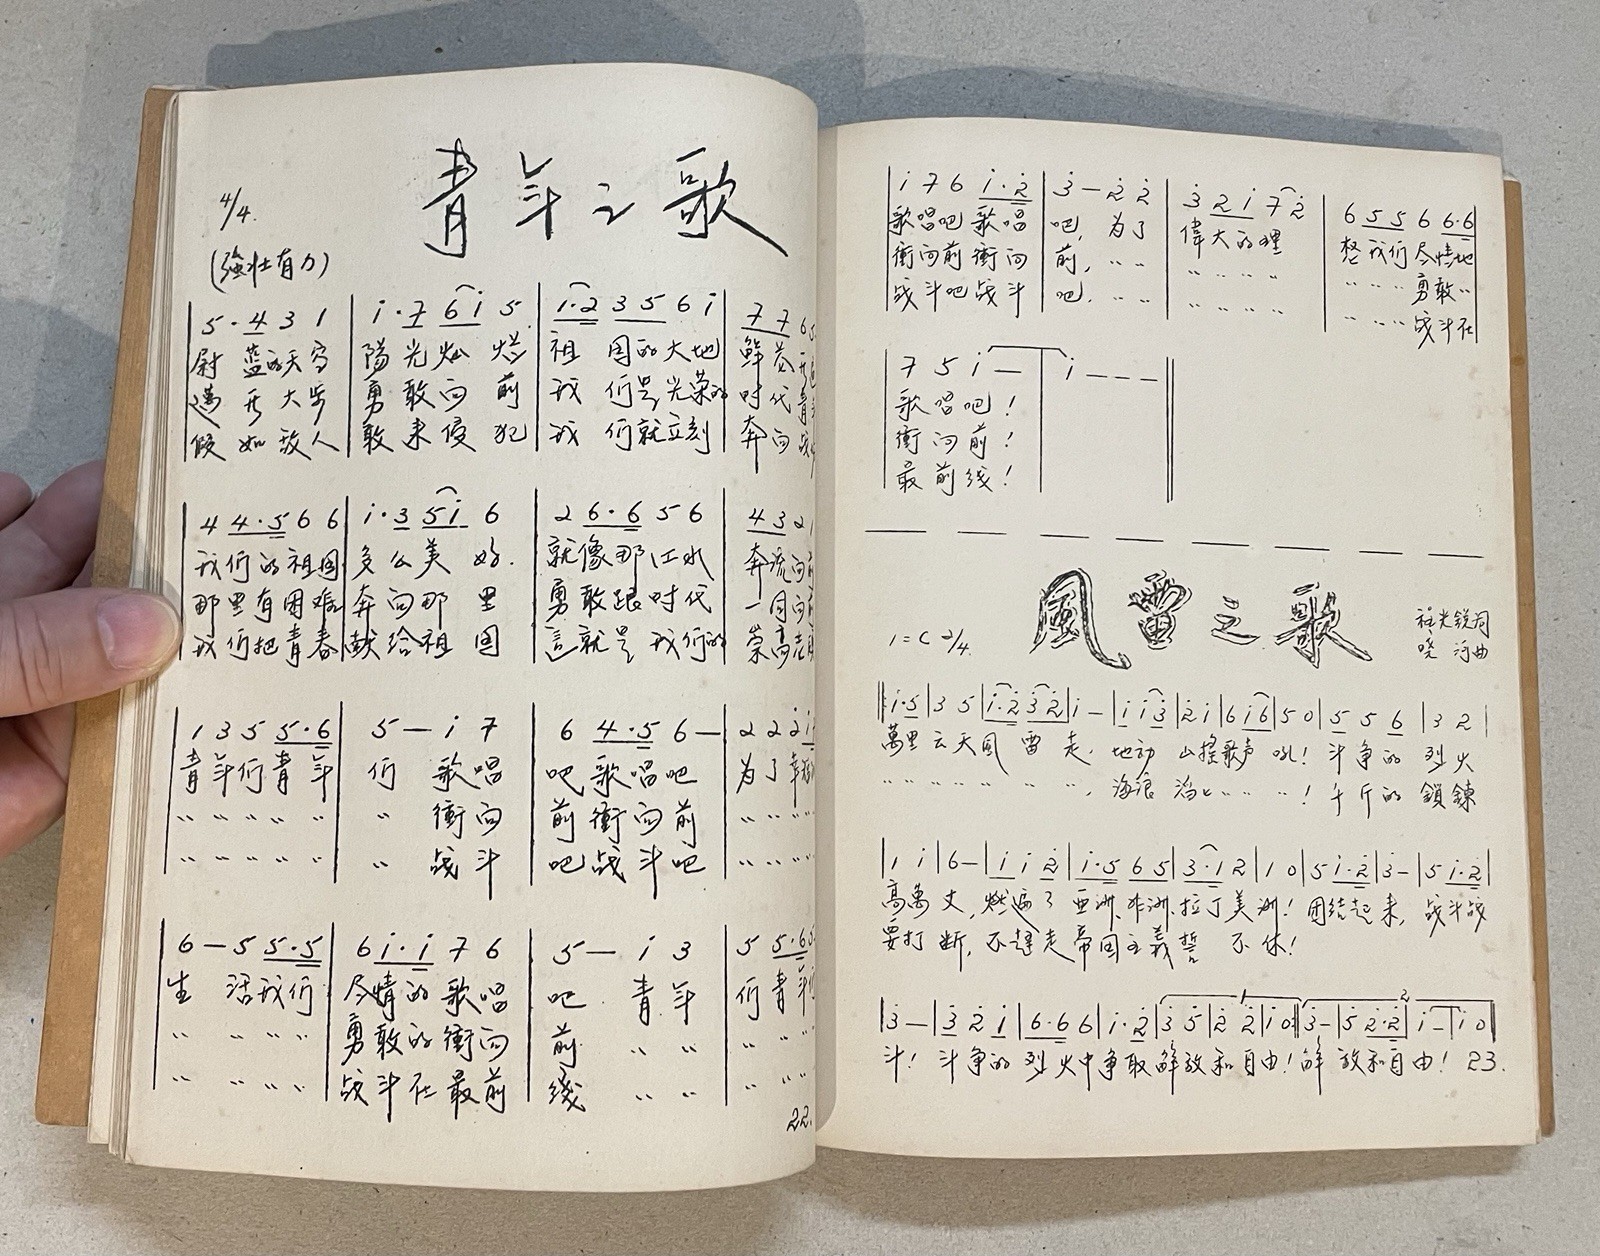 青年之歌
4/4.
(強壮有力)
5·4 3 1 | i·7 6 i 5 | i·2 3 5 6 i | 7 7 6 5
尉蓝的天空 陽光灿烂 祖国的大地 鲜花开
邁开大步 勇敢向前 我们是光荣的 时代青
假如敌人 敢来侵犯 我们就立刻 奔向战
4 4·5 6 6 | i·3 5 i 6 | 2 6·6 5 6 | 4 3 2 1
我们的祖国 多么美好. 就像那江水 奔流向前
那里有困难 奔向那里 勇敢跟时代 一同向
我们把青春 献给祖国 這就是我们的 崇高志
1 3 5 5·6 | 5 — i 7 | 6 4·5 6 — | 2 2 2 i
青年们青年 们 歌唱 吧歌唱吧 为了幸福
〃〃〃〃〃 〃 衝向 前衝向前 〃〃〃〃
〃〃〃〃〃 〃 战斗 吧战斗吧 〃〃〃〃
6 — 5 5·5 | 6 i·i 7 6 | 5 — i 3 | 5 5·6 5
生 活我们 尽情的歌唱 吧 青年 们青年
〃 〃〃〃 勇敢的衝向 前 〃〃 〃〃〃
〃 〃〃〃 战斗在最前 线 〃〃 〃〃〃
22.
i 7 6 i·2 | 3 — 2 2 | 3 2 i 7 2 | 6 5 5 6 6·6
歌唱吧歌唱 吧, 为了 偉大的理 想我们尽情地
衝向前衝向 前, 〃〃 〃〃〃〃 〃〃〃勇敢〃
战斗吧战斗 吧. 〃〃 〃〃〃〃 〃〃〃战斗在
7 5 i — | i — — —
歌唱吧!
衝向前!
最前线!
風雷之歌
1=C 2/4.
光锐词
晓河曲
i·5 | 3 5 | i·2 3 2 | i — | i i 3 | 2 i | 6 i 6 | 5 0 | 5 5 6 | 3 2 |
萬里云天風雷走, 地动山摇歌声吼! 斗争的烈火
〃〃〃〃〃〃〃, 海浪滔〃〃〃〃! 千斤的鎖鍊
1 i | 6 — | i i 2 | i·5 6 5 | 3·1 2 | 1 0 | 5 i·2 | 3 — | 5 i·2 |
高萬丈, 燃遍了亚洲、非洲、拉丁美洲! 团结起来, 战斗战
要打断, 不趕走帝国主義誓不休!
3 — | 3 2 i | 6·6 6 | i·2 | 3 5 | 2 2 | i 0 :|| 3 — | 5 2·2 | i — | i 0 ||
斗! 斗争的烈火中争取解放和自由! 解放和自由! 23.